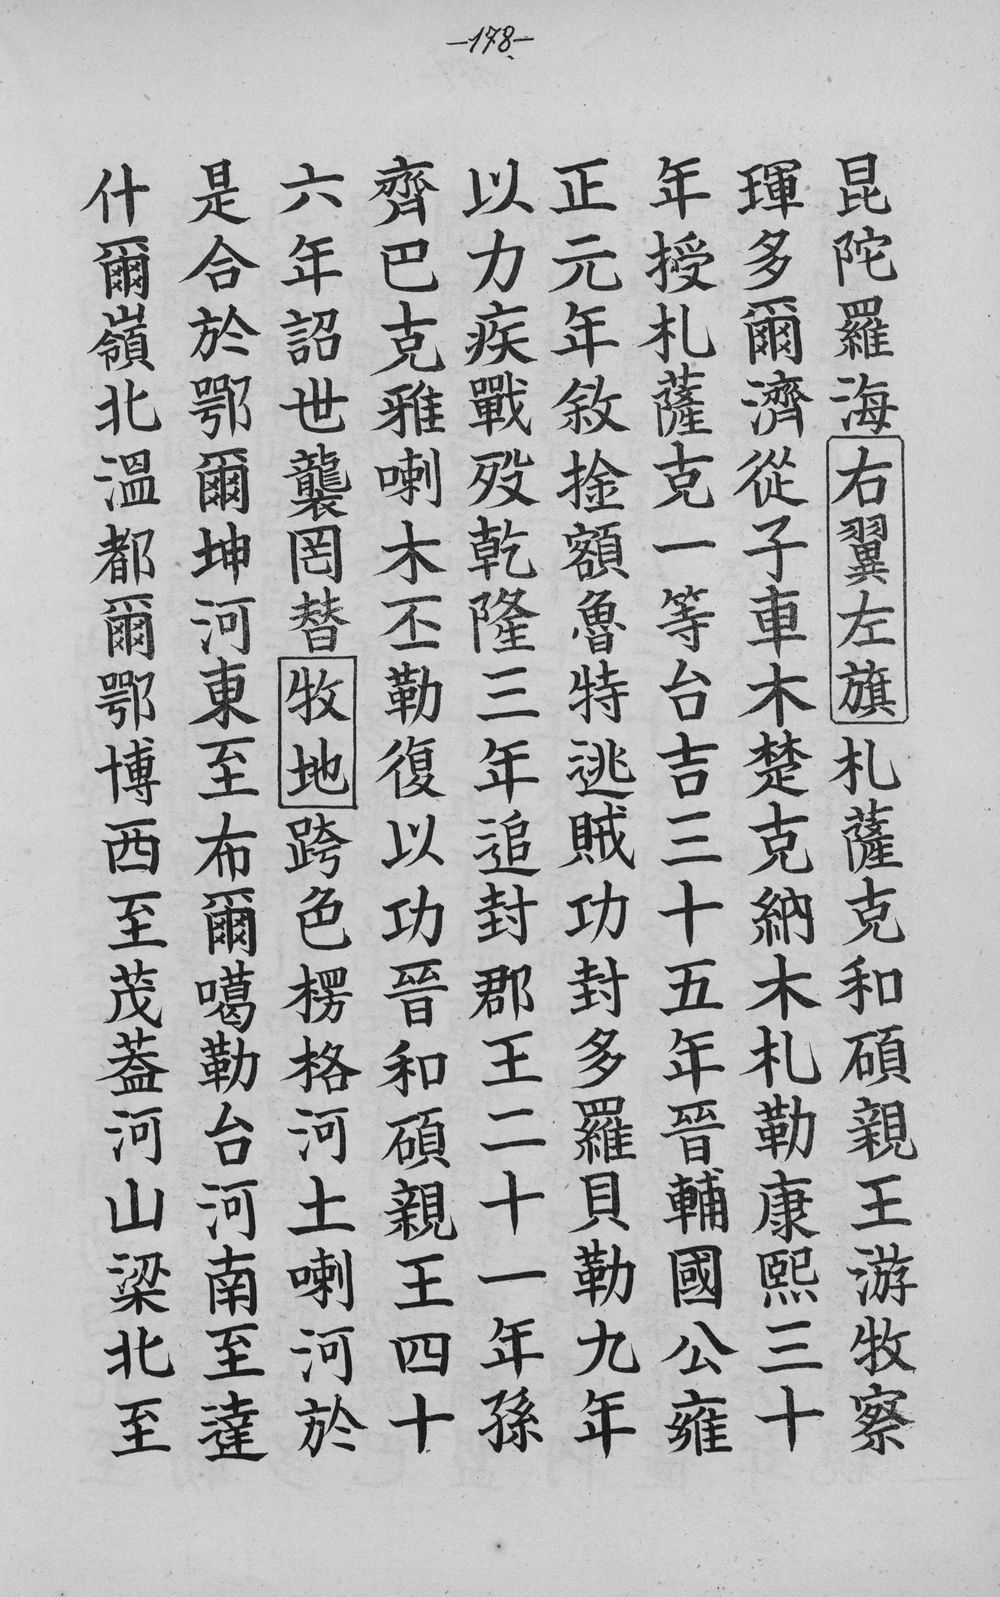 —178—
昆陀羅海右翼左旗札薩克和碩親王游牧察
琿多爾濟從子車木楚克納木札勒康熙三十
年授札薩克一等台吉三十五年晉輔國公雍
正元年敘捦額魯特逃賊功封多羅貝勒九年
以力疾戰歿乾隆三年追封郡王二十一年孫
齊巴克雅喇木丕勒復以功晉和碩親王四十
六年詔世襲罔替牧地跨色楞格河土喇河於
是合於鄂爾坤河東至布爾噶勒台河南至達
什爾嶺北溫都爾鄂博西至茂蓋河山梁北至